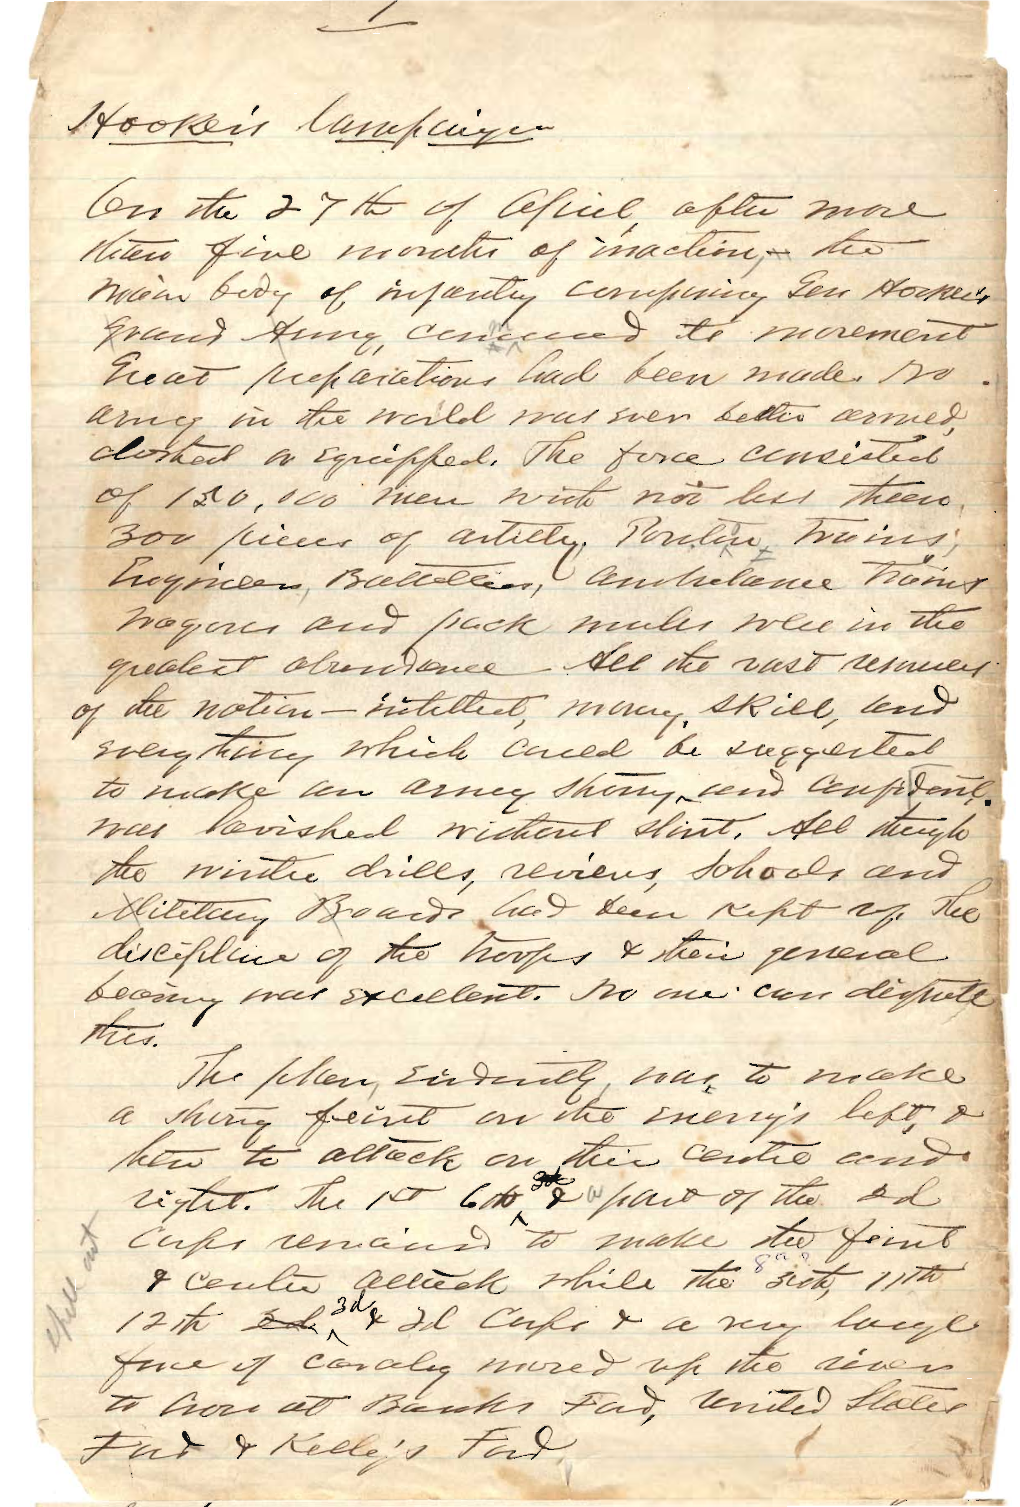 1
Hooker's Campaign
On the 27th of April, after more
than five months of inaction, the
main body of infantry comprising Gen Hooker's
Grand Army, commenced its movement
Great preparations had been made. No
army in the world was ever better armed,
clothed or equipped. The force consisted
of 150,000 men with not less than
300 pieces of artillery. Pontoon Trains,
Engineers, Batteries, Ambulance Trains
wagons and pack mules were in the
greatest abundance. All the vast resources
of the nation — intellect, money, skill, and
everything which could be suggested
to make an army strong, and confident,
was lavished without stint. All through
the winter drills, reviews, schools and
Military Boards had been kept up. The
discipline of the troops & their general
bearing was excellent. No one can dispute
this.
The plan, evidently, was, to make
a strong feint on the enemy's left, &
then to attack on their centre and
right. The 1st 6th & a part of the 2d
Corps remained to make the feint
& centre attack while the 11th
12th 2d 3d & 2d Corps & a very large
force of cavalry moved up the river
to cross at Banks Ford, United States
Ford & Kelly's Ford.
spell out